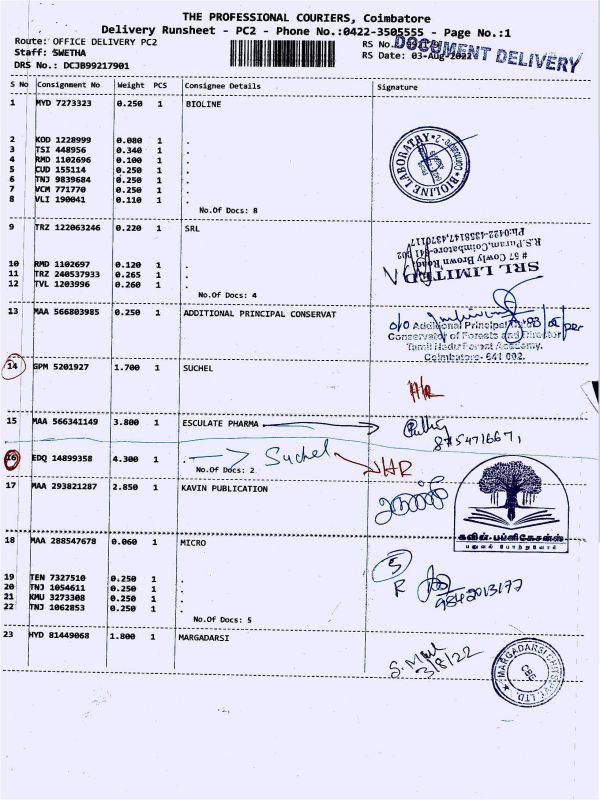 THE PROFESSIONAL COURIERS, Coimbatore
Delivery Runsheet - PC2 - Phone No.:0422-3505555 - Page No.:1
Route: OFFICE DELIVERY PC2
RS No.
DOCUMENT DELIVERY
Staff: SWETHA
RS Date: 03-Aug-2022
DRS No.: DCJB99217901
S No Consignment No Weight PCS Consignee Details Signature
1 MYD 7273323 0.250 1 BIOLINE
BIOLINE LABORATRY Coimbatore-2
2 KOD 1228999 0.080 1 .
3 TSI 448956 0.340 1 .
4 RMD 1102696 0.100 1 .
5 CUD 155114 0.250 1 .
6 TNJ 9839684 0.250 1 .
7 VCM 771770 0.250 1 .
8 VLI 190041 0.110 1 .
No.Of Docs: 8
9 TRZ 122063246 0.220 1 SRL
SRL LIMITED
# 57 Cowly Brown Road
R.S.Puram,Coimbatore-641 002
Ph:0422-4358147,4370117
10 RMD 1102697 0.120 1 .
11 TRZ 240537933 0.265 1 .
12 TVL 1203996 0.260 1 .
No.Of Docs: 4
13 MAA 566803985 0.250 1 ADDITIONAL PRINCIPAL CONSERVAT
o/o Additional Principal Chief
Conservator of Forests and Director
Tamil Nadu Forest Academy.
Coimbatore- 641 002.
14 GPM 5201927 1.700 1 SUCHEL
H/R
15 MAA 566341149 3.800 1 ESCULATE PHARMA
16 EDQ 14899358 4.300 1 .
Suchel
HR
No.Of Docs: 2
17 MAA 293821287 2.850 1 KAVIN PUBLICATION
கவின்-பப்ளிகேசன்ஸ்
18 MAA 288547678 0.060 1 MICRO
5
R
9842013177
19 TEN 7327510 0.250 1 .
20 TNJ 1054611 0.250 1 .
21 KMU 3273308 0.250 1 .
22 TNJ 1062853 0.250 1 .
No.Of Docs: 5
23 HYD 81449068 1.800 1 MARGADARSI
3/8/22
MARGADARSI CHITS PVT. LTD
CBE